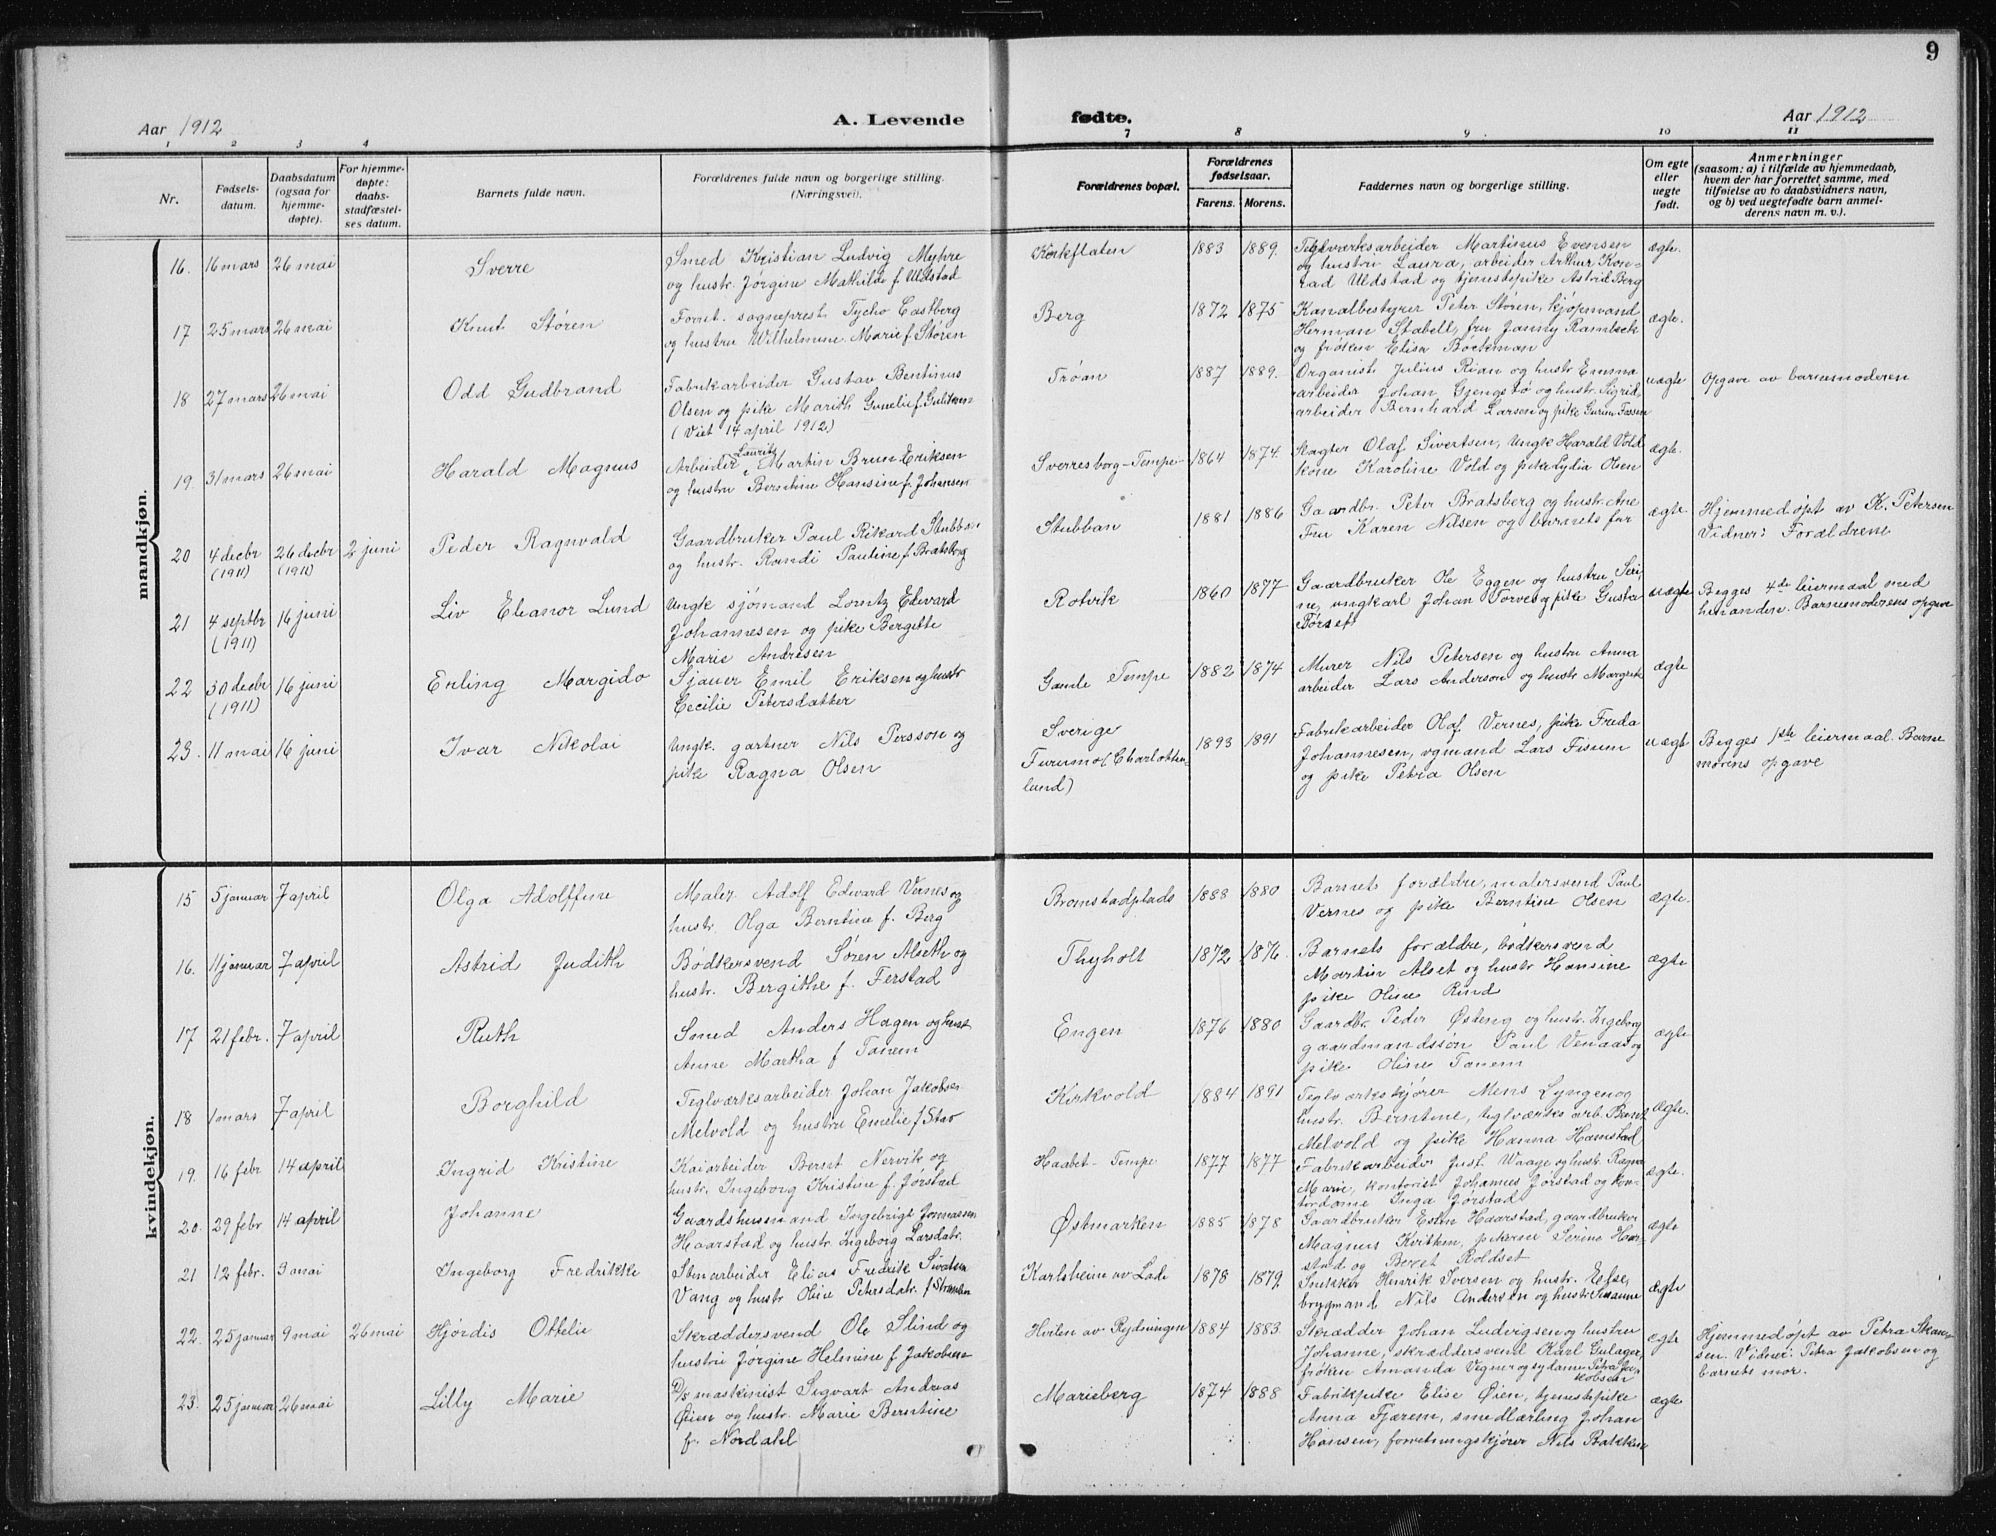 9
Aar 1912
A. Levende fødte.
Aar 1912
1 2 3 4 7 8 9 10 11
Nr.
Fødsels-
datum.
Daabsdatum
(ogsaa for
hjemme-
døpte).
For hjemme-
døpte:
daabs-
stadfæstel-
ses datum.
Barnets fulde navn.
Forældrenes fulde navn og borgerlige stilling.
(Næringsvei).
Forældrenes bopæl.
Forældrenes
fødselsaar.
Farens. Morens.
Faddernes navn og borgerlige stilling.
Om egte
eller
uegte
født.
Anmerkninger
(saasom: a) i tilfælde av hjemmedaab,
hvem der har forrettet samme, med
tilføielse av to daabsvidners navn,
og b) ved uegtefødte barn anmel-
derens navn m. v.).
mandkjøn.
16. 16 mars 26 mai Sverre
Smed Kristian Ludvig Myhre
og hustr. Jørgine Mathilde f. Uldstad
Korkflaten 1883 1889.
Teglværksarbeider Martinus Evensen
og hustru Laura, arbeider Arthur Kon-
rad Uldstad og tjenestepike Astrid Berg
ægte.
17 25 mars 26 mai Knut Støren
Forrt. sogneprest Tycho Castberg
og hustru Wilhelmine Marie f Støren
Berg 1872 1875
Kanalbestyrer Peter Støren, kjøpmand
Herman Stabell, fru Janny Rambech
og frøken Elisa Bøckman
ægte.
18 27 mars 26 mai Odd Gudbrand
Fabrikarbeider Gustav Bentinus
Olsen og pike Marith Gunelie f. Guliksen
(Viet 14 april 1912)
Trøan 1887 1889.
Organist Julius Rian og hustr Emma
arbeider Johan Gjengstø og hustr. Sigrid,
arbeider Bernhard Larsen og pike Gurine Fossen
uægte
Opgave av barnemoderen
19. 31 mars 26 mai Harald Magnus
Lauritz
Arbeider Martin Brun Eriksen
og hustru Berntine Hansine f. Johansen
Sverresborg-Tempe 1864 1874.
Slagter Olaf Sivertsen, Ungk Harald Vold
kone Karoline Vold og pike Lydia Olsen
ægte.
20 4 decbr 26 decbr 2 juni Peder Ragnvald
(1911) (1911)
Gaardbruker Paul Rikard Stubban
og hustr. Randi Pauline f Bratsberg
Stubban 1881 1886
Gaardbr. Peter Bratsberg og hustr. Ane
Fru Karen Nilsen og barnets far
ægte
Hjemmedöpt av K. Petersen
Vidner: Forældrene
21 4 septbr 16 juni Liv Eleanor Lund
(1911)
Ungk sjømand Lorntz Edevard
Johannesen og pike Bergitte
Marie Andresen
Rotvik 1860 1877
Gaardbruker Ole Eggen og hustru Seri-
ne, ungkarl Johan Torves og pike Gusta
Børset
uægte
Begges 4de leiermaal med
hinanden. Barnemoderens opgave
22 30 decbr 16 juni Erling Margido
(1911)
Sjauer Emil Eriksen og hustr
Cecilie Petersdatter
Gamle Tempe 1882 1874
Murer Nils Petersen og hustru Anna
arbeider Lars Anderson og hustr Margrete
ægte
23. 11 mai 16 juni Ivar Nikolai
Ungk. gartner Nils Persson og
pike Ragna Olsen
Sverige
Furumo (Charlotten-
lund)
1893 1891
Fabrikarbeider Olaf Vernes, pike Freda
Johannesen, vgmand Lars Fisum
og pike Petra Olsen
uægte
Begges 1ste leiermaal. Barne
morens opgave
kvindekjøn.
15 5 januar 7 april Olga Adolffine
Maler Adolf Edward Vernes og
hustr. Olga Berntine f. Berg
Bromstadplads 1888 1880
Barnets forældre, malersvend Paul
Vernes og pike Berntine Olsen
ægte.
16. 11 januar 7 april Astrid Judith
Bødkersvend Søren Alseth og
hustr. Bergithe f. Ferstad
Thyholt 1872 1876
Barnets forældre, bødkersvend
Martin Alset og hustr Hansine
pike Oline Rind
ægte
17 21 febr. 7 april Ruth
Smed Anders Hagen og hust
Anne Martha f Tanem
Engen 1876 1880
Gaardbr. Peder Østeng og hustr. Ingeborg
gaardmandssøn Paul Venaas og
pike Oline Tanem
ægte
18 1 mars 7 april Borghild
Teglværksarbeider Johan Jakobsen
Melvold og hustru Emelie f Stav
Kirkvold 1884 1891
Teglværkskjører Mens Lyngen og
hustr. Berntine, teglværks arb. Bernt
Melvold og pike Hanna Hamstad
ægte.
19. 16 febr 14 april Ingrid Kristine
Kaiarbeider Bernt Nervik og
hustr. Ingeborg Kristine f. Jørstad
Haabet-Tempe 1877 1877
Fabrikarbeider Just Waage og hustr. Ragna
Marie, kontorist Johannes Jørstad og kon-
tordame Inga Jørstad
ægte.
20. 29 febr 14 april Johanne
Gaardshusmand Ingebrigt Jonnassen
Haarstad og hustr. Ingeborg Larsdatr.
Østmarken 1885 1878
Gaardbruker Esten Haarstad, gaardbruker
Magnus Kvithem, pikerne Serine Haar-
stad og Beret Roldset
ægte
21 12 febr. 9 mai Ingeborg Fredrikke
Stenarbeider Elias Fredrik Sivertsen
Vang og hustr Oline Petersdatr. f Strømlen
Karlsheim av Lade 1878 1879
Snekker Henrik Iversen og hustr. Else,
brygmand Nils Andersen og hustr Susanne
ægte
22. 25 januar 9 mai 26 mai Hjørdis Ottelie
Skræddersvend Ole Slind og
hustru Jørgine Helmine f Jakobsen
Hvilen av Rydningen 1884 1883
Skrædder Johan Ludvigsen og hustru
Johanne, skræddersvend Karl Gulager,
frøken Amanda Vegner og sydame Petra Ja-
kobsen
ægte
Hjemmedöpt av Petra Skan-
sen. Vidner: Petra Jakobsen og
barnets mor.
23. 25 januar 26 mai Lilly Marie
D/s maskinist Sigvart Andreas
Øien og hustr. Marie Berntine
f. Nordahl
Marieberg 1874 1888
Fabrikpike Elise Øien, tjenestepike
Anna Fjærem, smedlærling Johan
Hansen, forretningskjører Nils Bakken
ægte